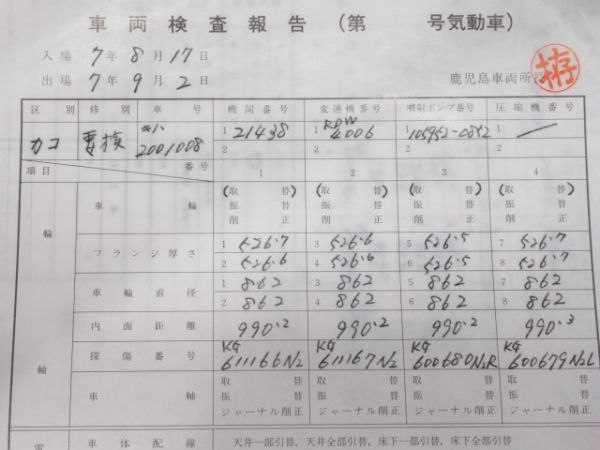 車両検査報告(第　　号気動車)
入場 7年 8月 17日
出場 7年 9月 2日
鹿児島車両所長
区別 修別 車号 機関番号 変速機番号 噴射ポンプ番号 圧縮機番号
カコ 要検 キハ 2001008 1 21438 1 RDW 4006 1 105952-0852 1 ―
2 2 2 2
項目 番号 1 2 3 4
輪軸
車輪 (取替) 振替 削正 (取替) 振替 削正 (取替) 振替 削正 (取替) 振替 削正
フランジ厚さ 1 526.7 3 526.6 5 526.5 7 526.7
2 526.6 4 526.6 6 526.5 8 526.7
車輪直径 1 862 3 862 5 862 7 862
2 862 4 862 6 862 8 862
内面距離 990.2 990.2 990.2 990.3
探傷番号 KG 611166N2 KG 611167N2 KG 600680N2R KG 600679N2L
車軸 取替 振替 ジャーナル削正 取替 振替 ジャーナル削正 取替 振替 ジャーナル削正 取替 振替 ジャーナル削正
車体配線 天井一部引替、天井全部引替、床下一部引替、床下全部引替